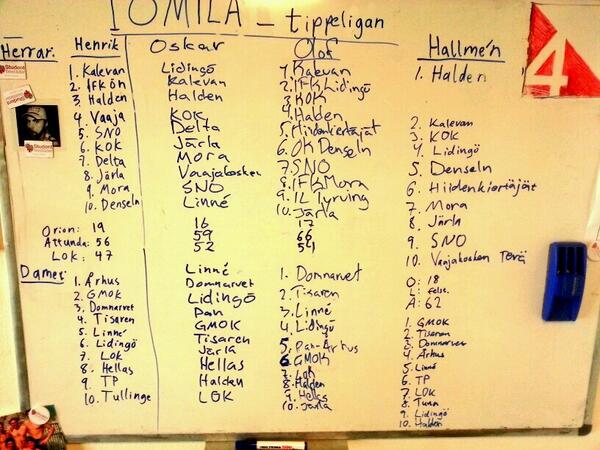 10MILA - tippeligan
Herrar: Henrik Oskar Olof Hallmé'n
1. Kalevan
2. IFK Ön
3. Halden
4. Vaaja
5. SNO
6. KOK
7. Delta
8. Järla
9. Mora
10. Denseln
Orion: 19
Attunda: 56
LOK: 47
Lidingö
Kalevan
Halden
KOK
Delta
Järla
Mora
Vaajakosken
SNO
Linné
16
59
52
1. Kalevan
2. IFK Lidingö
3. KOK
4. Haden
5. Hiidenkiertäjät
6. OK Denseln
7. SNO
8. IFK Mora
9. IL Tyrving
10. Järla
17
66
54
1. Halden
2. Kalevan
3. KOK
4. Lidingö
5. Denseln
6. Hiidenkiertäjät
7. Mora
8. Järla
9. SNO
10. Vaajakosken Terä
O: 18
L: felst.
A: 62
Damer:
1. Århus
2. GMOK
3. Domnarvet
4. Tisaren
5. Linné
6. Lidingö
7. LOK
8. Hellas
9. TP
10. Tullinge
Linné
Domnarvet
Lidingö
Pan
GMOK
Tisaren
Järla
Hellas
Halden
LOK
1. Domnarvet
2. Tisaren
3. Linné
4. Lidingö
5. Pan-Århus
6. GMOK
7. Lok
8. Halden
9. Hellas
10. Järla
1. GMOK
2. Tisaren
3. Domnarvet
4. Århus
5. Linné
6. TP
7. LOK
8. Turun
9. Lidingö
10. Halden
4